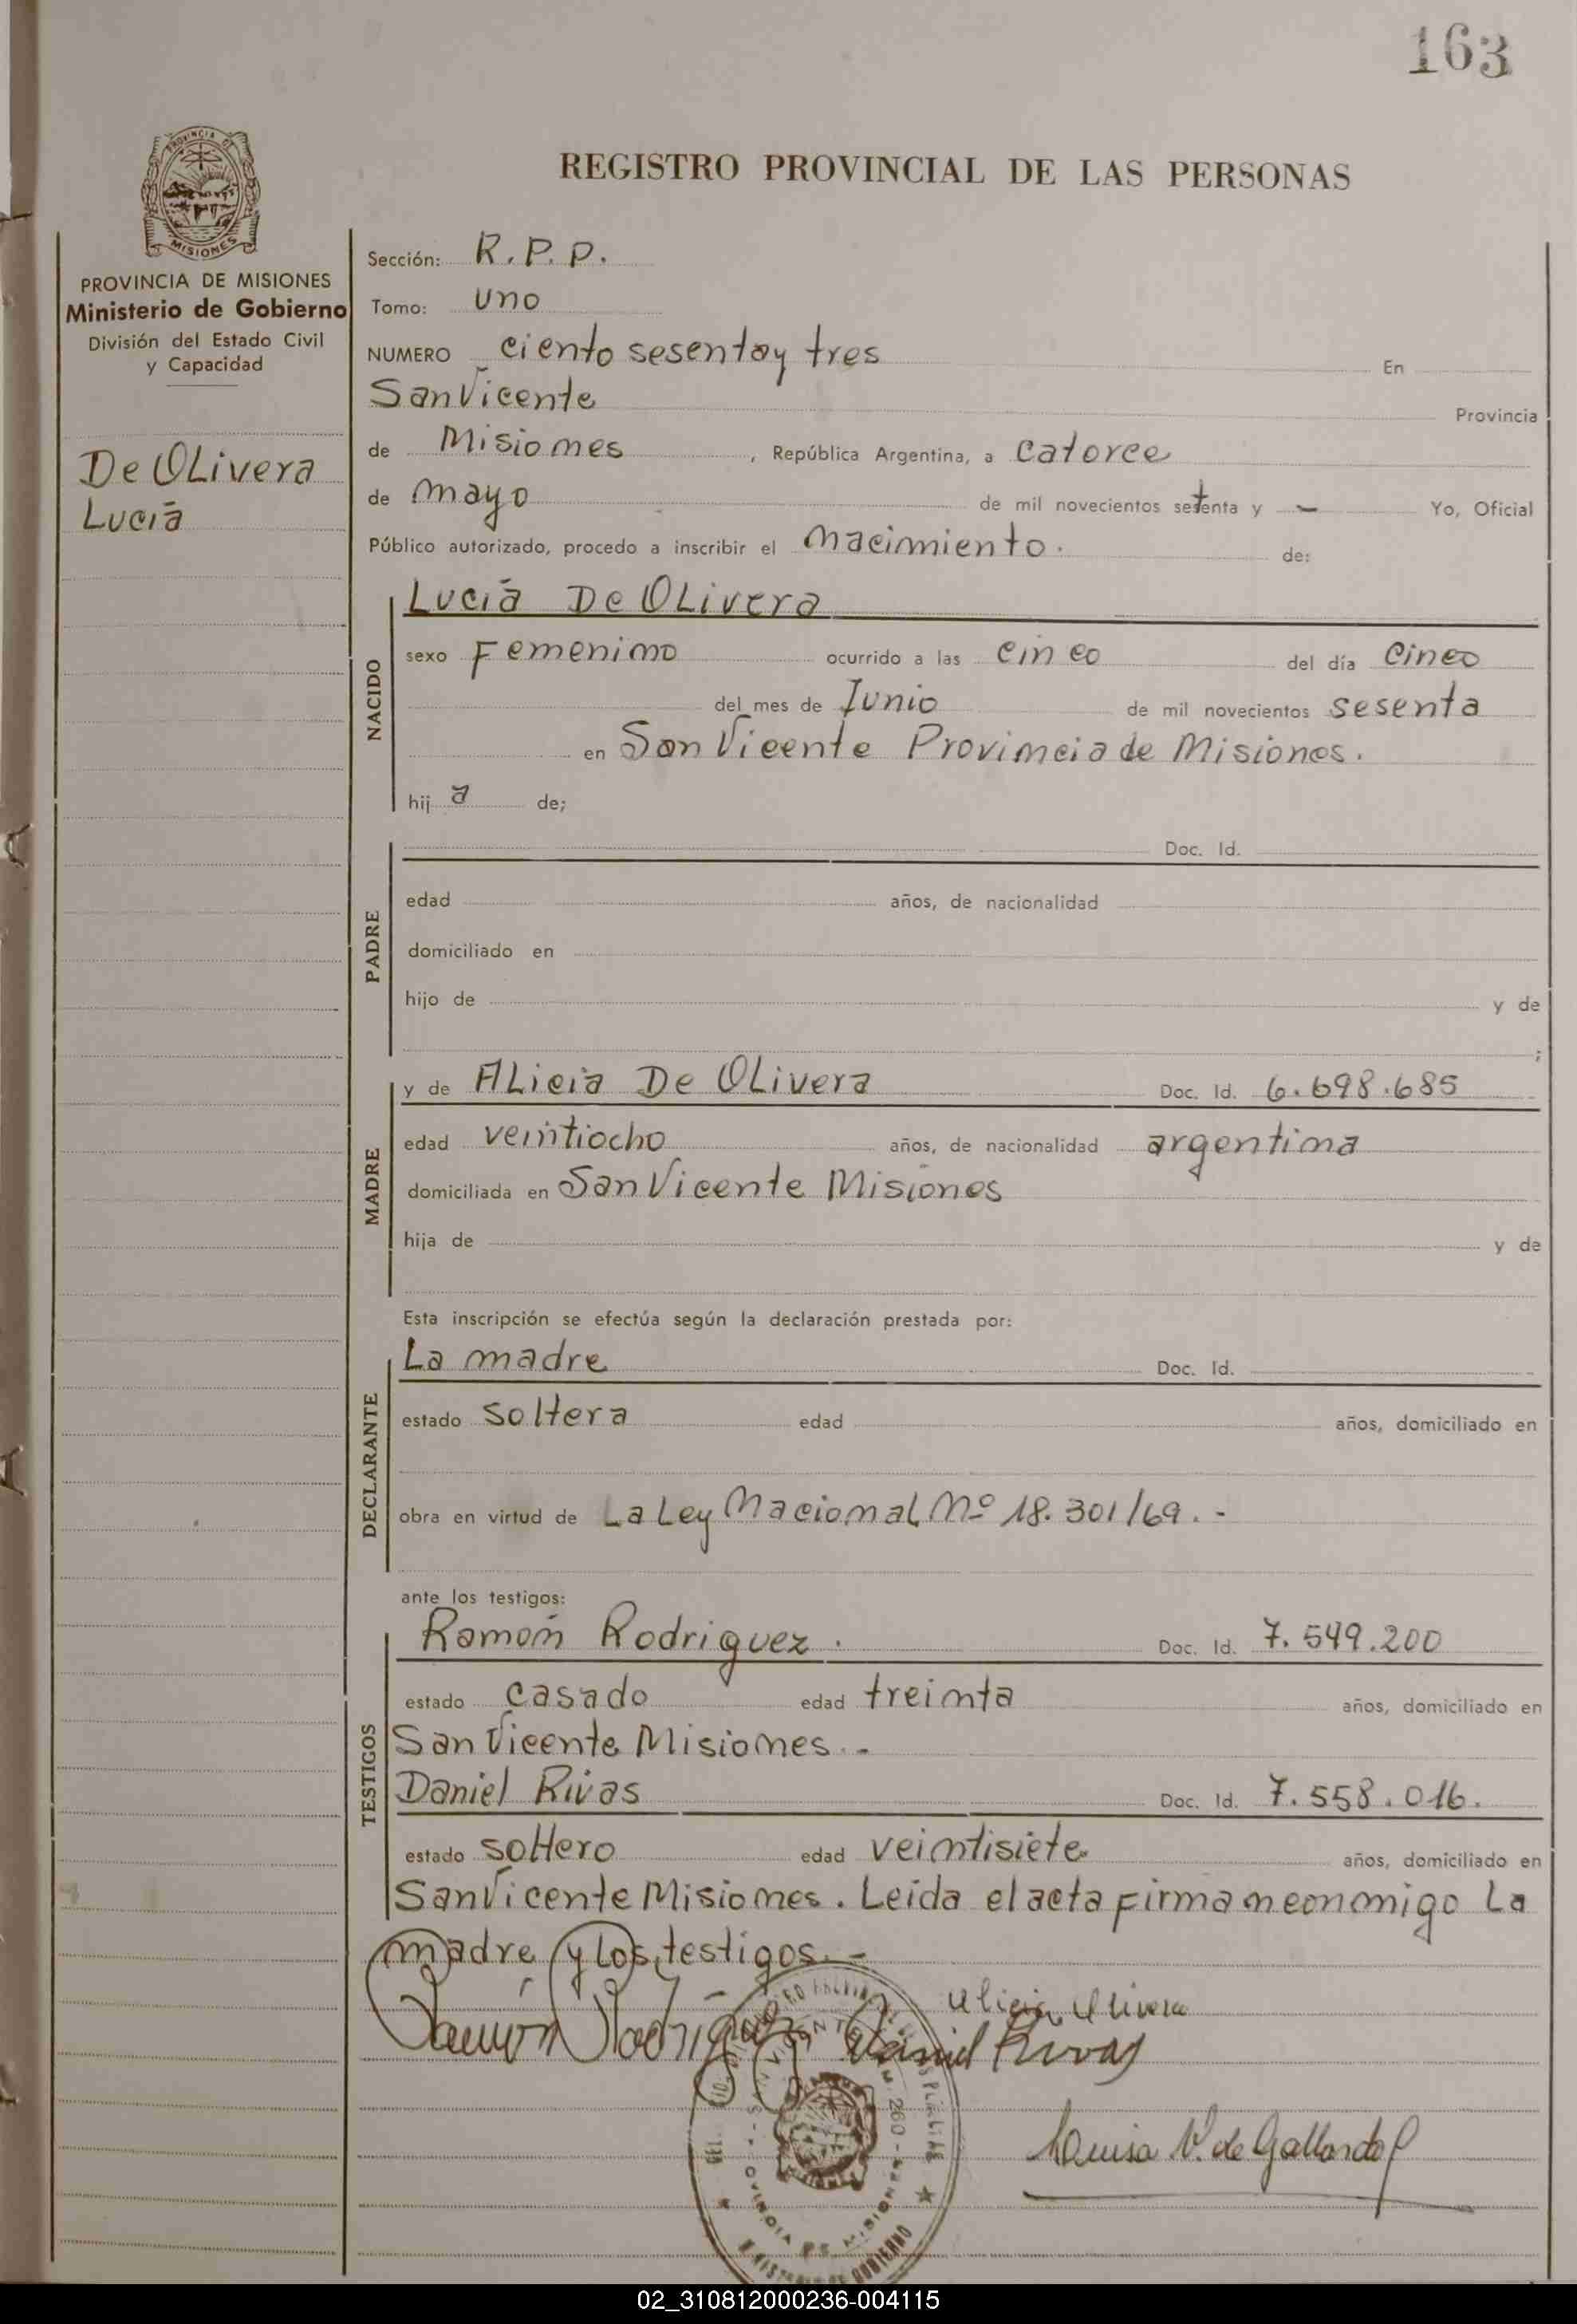 163
PROVINCIA DE
MISIONES
REGISTRO PROVINCIAL DE LAS PERSONAS
PROVINCIA DE MISIONES
Ministerio de Gobierno
División del Estado Civil
y Capacidad
De OLivera
Lucia
Sección: R.P.P.
Tomo: uno
NUMERO ciento sesenta y tres En
San Vicente Provincia
de Misiones, República Argentina, a catorce
de mayo de mil novecientos setenta y - Yo, Oficial
Público autorizado, procedo a inscribir el nacimiento. de:
NACIDO
Lucia De OLivera
sexo Femenino ocurrido a las cinco del día cinco
del mes de Junio de mil novecientos sesenta
en San Vicente Provincia de Misiones.
hij a de;
PADRE
Doc. Id.
edad años, de nacionalidad
domiciliado en
hijo de y de
;
MADRE
y de ALicia De OLivera Doc. Id. 6.698.685
edad veintiocho años, de nacionalidad argentina
domiciliada en San Vicente Misiones
hija de y de
Esta inscripción se efectúa según la declaración prestada por:
DECLARANTE
La madre Doc. Id.
estado soltera edad años, domiciliado en
obra en virtud de La Ley Nacional Nº 18.301/69.-
ante los testigos:
TESTIGOS
Ramón Rodriguez. Doc. Id. 7.549.200
estado casado edad treinta años, domiciliado en
San Vicente Misiones.-
Daniel Rivas Doc. Id. 7.558.016.
estado soltero edad veintisiete años, domiciliado en
San Vicente Misiones. Leida el acta firman conmigo La
madre y los testigos.-
Alicia Olivera
Ramón Rodríguez Daniel Rivas
Louisa V. de Gallardo
02_310812000236-004115